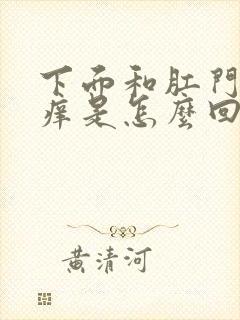 下面和肛門
痒是怎麽回
黄清河